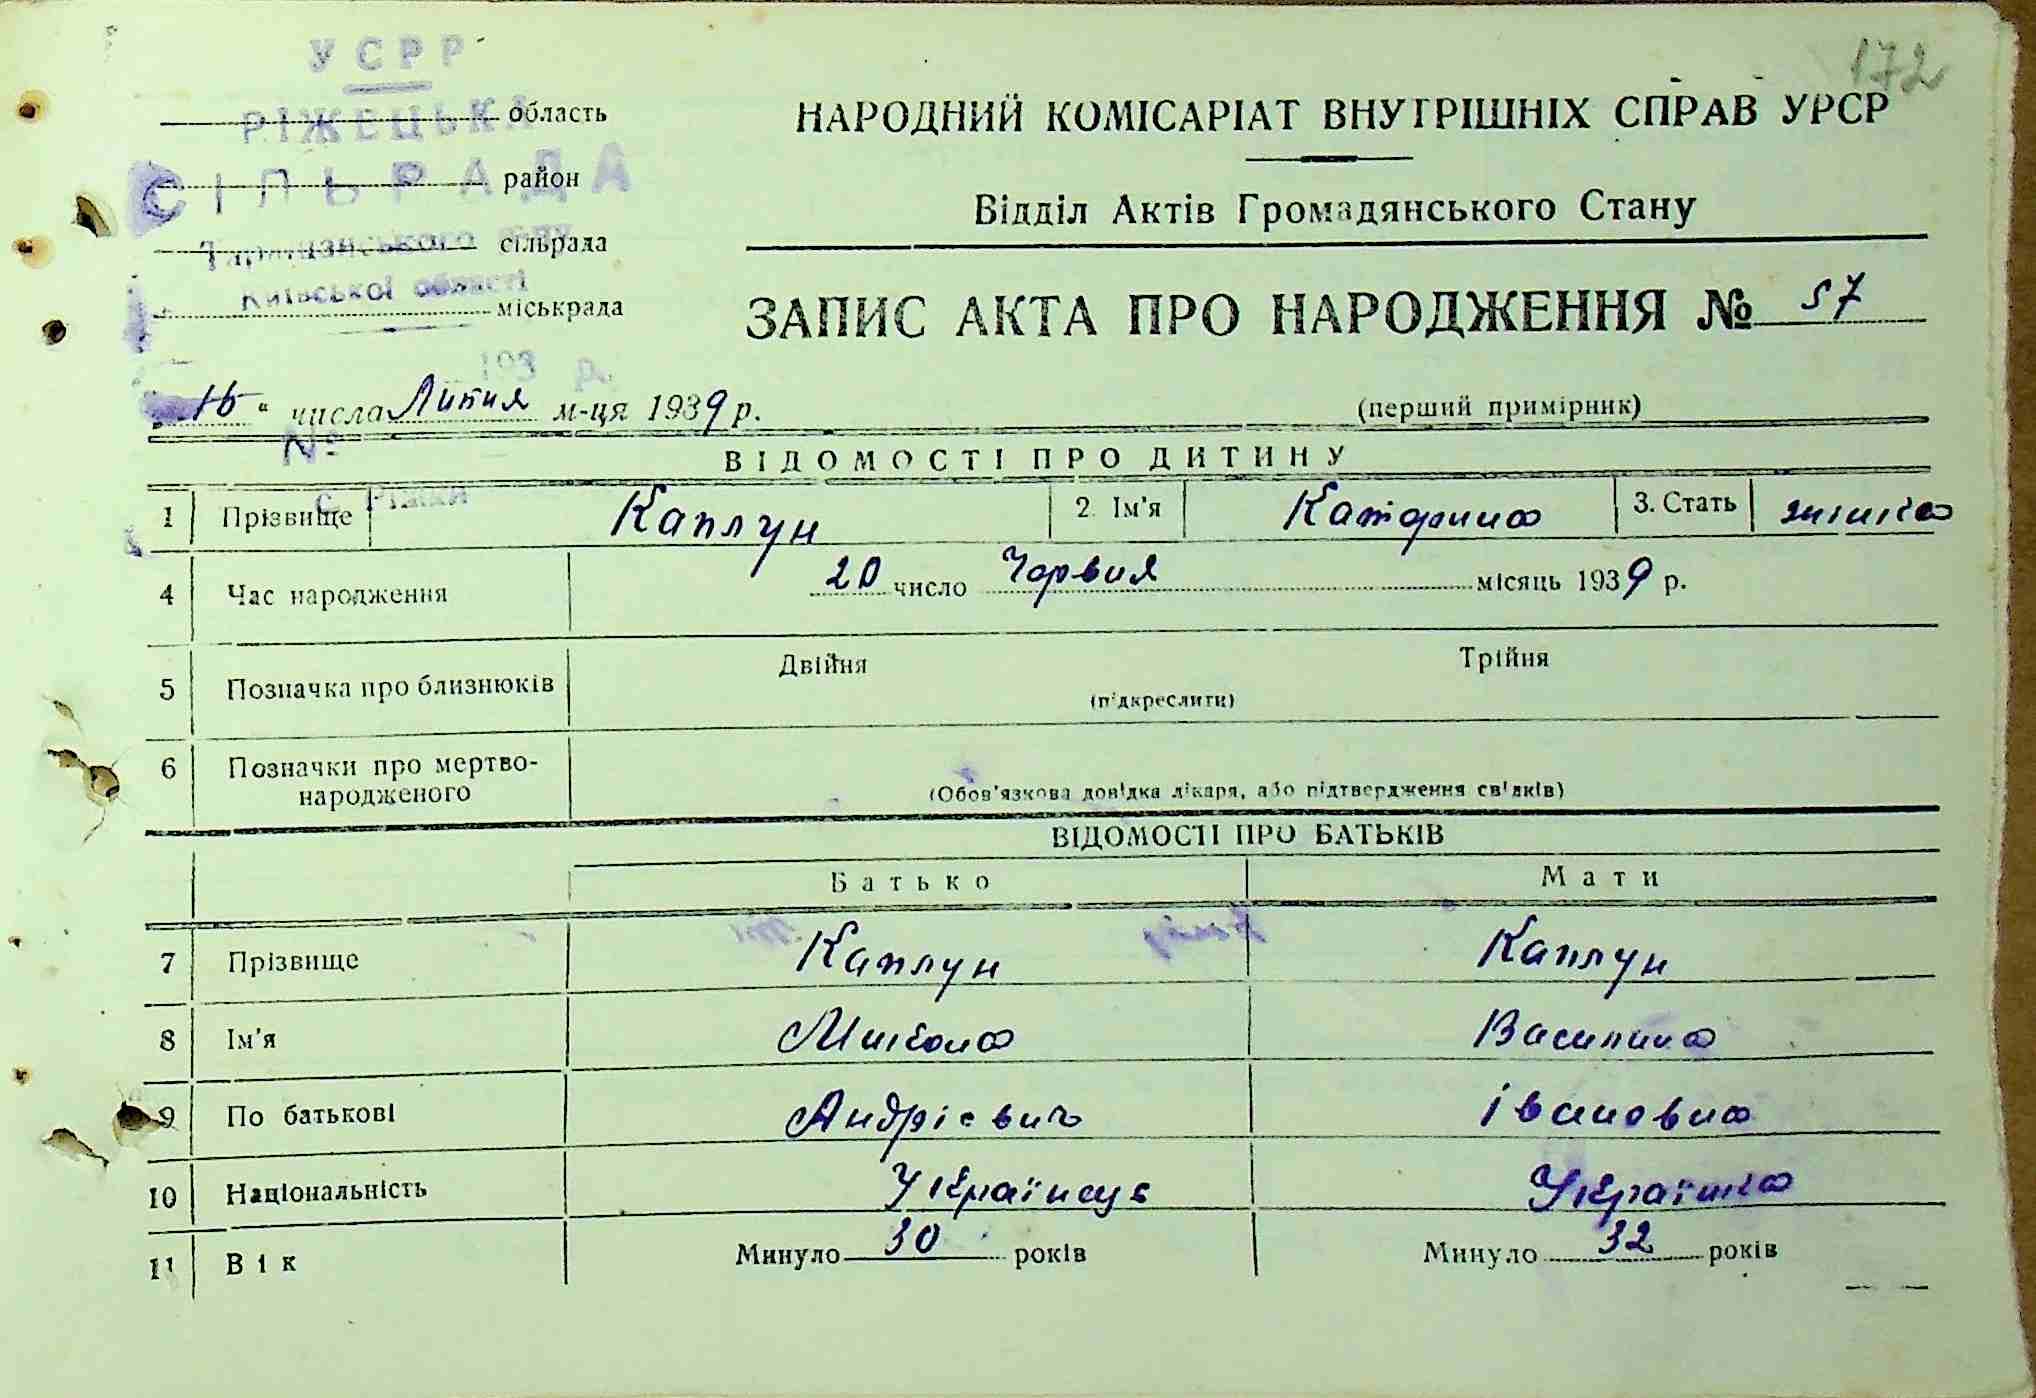 172
УСРР
РІЖЕЦЬКА
СІЛЬРАДА
Київської області
193 р.
№
с. Ріжки
область
район
сільрада
міськрада
НАРОДНИЙ КОМІСАРІАТ ВНУТРІШНІХ СПРАВ УРСР
Відділ Актів Громадянського Стану
ЗАПИС АКТА ПРО НАРОДЖЕННЯ № 57
16 " числа Липня м-ця 1939 р.
(перший примірник)
ВІДОМОСТІ ПРО ДИТИНУ
1 Прізвище Каплун 2. Ім'я Катерина 3. Стать жіноча
4 Час народження 20 число Червня місяць 1939 р.
5 Позначка про близнюків Двійня Трійня
(підкреслити)
6 Позначки про мертво-
народженого
(Обов'язкова довідка лікаря, або підтвердження свідків)
ВІДОМОСТІ ПРО БАТЬКІВ
Батько Мати
7 Прізвище Каплун Каплун
8 Ім'я Микола Василина
9 По батькові Андрієвич Івановна
10 Національність Українець Українка
11 Вік Минуло 30 років Минуло 32 років